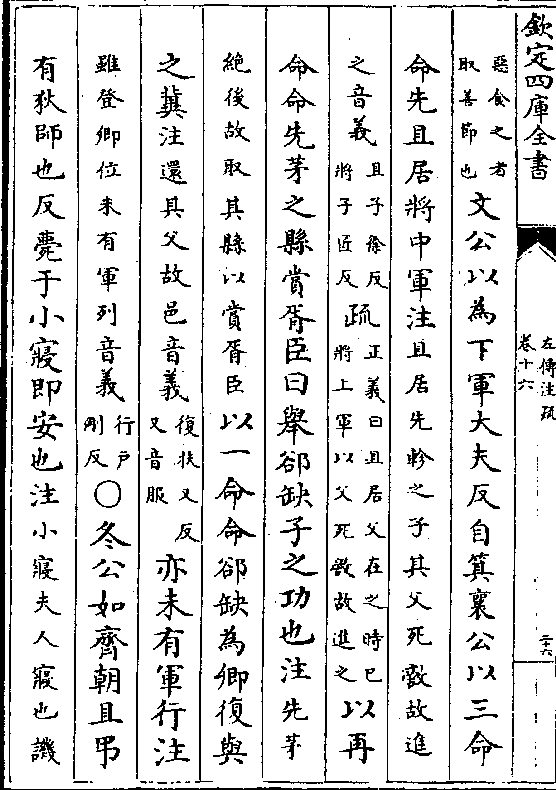 欽定四庫全書
左傳注疏
卷十六
二十六
惡食之者
取善節也
文公以為下軍大夫反自箕襄公以三命
命先且居將中軍注且居先軫之子其父死敵故進
之音義
且子餘反
將子匠反
疏
正義曰且居父在之時已
將上軍以父死敵故進之
以再
命命先茅之縣賞胥臣曰舉郤缺子之功也注先茅
絶後故取其縣以賞胥臣以一命命郤缺為卿復與
之冀注還其父故邑音義
復扶又反
又音服
亦未有軍行注
雖登卿位未有軍列音義
行戸
剛反
○冬公如齊朝且弔
有狄師也反薨于小寢即安也注小寢夫人寢也譏